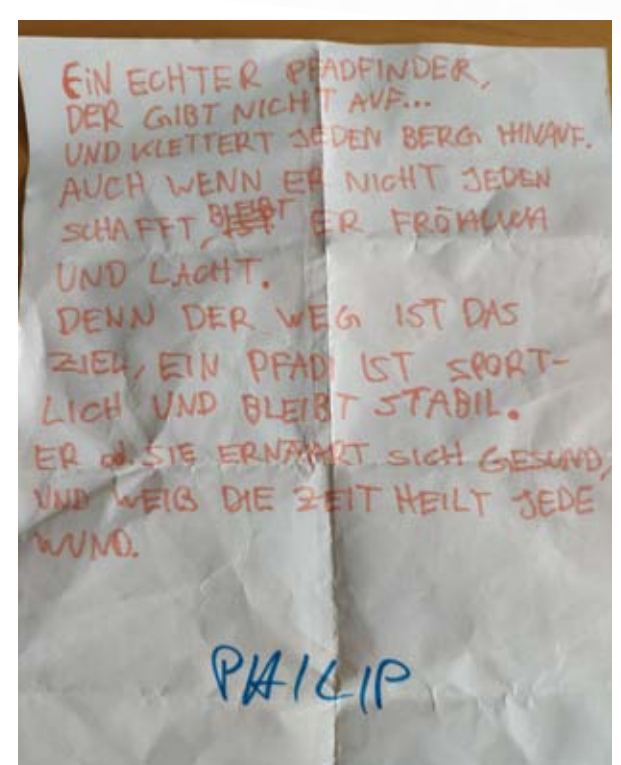 EIN ECHTER PFADFINDER,
DER GIBT NICHT AUF...
UND KLETTERT JEDEN BERG HINAUF.
AUCH WENN ER NICHT JEDEN
SCHAFFT, BLEIBT ER FRÖHLICH
UND LACHT.
DENN DER WEG IST DAS
ZIEL, EIN PFADI IST SPORT-
LICH UND BLEIBT STABIL.
ER od. SIE ERNÄHRT SICH GESUND,
UND WEIß DIE ZEIT HEILT JEDE
WUND.
PHILIP